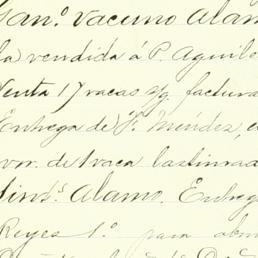 Gan.º Vacuno Alam
la vendida á P. Aguile
Venta 17 vacas s/g. factura
Entrega de P. Méndez, e
vor. de 1 vaca lastimad
Sint.s Alamo. Entreg
Reyes 1.º para abo